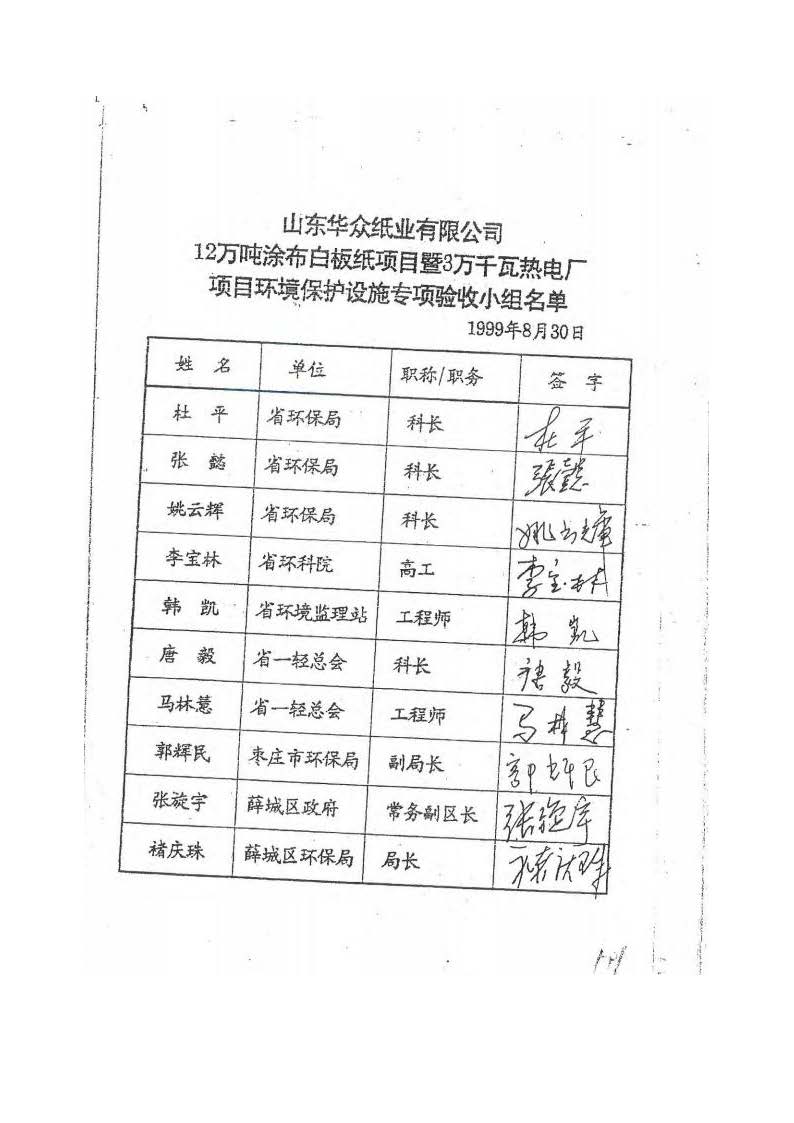 山东华众纸业有限公司
12万吨涂布白板纸项目暨3万千瓦热电厂
项目环境保护设施专项验收小组名单
1999年8月30日
姓 名 单位 职称/职务 签 字
杜 平 省环保局 科长 杜 平
张 懿 省环保局 科长 張懿
姚云辉 省环保局 科长 姚云辉
李宝林 省环科院 高工 李宝林
韩 凯 省环境监理站 工程师 韩 凯
唐 毅 省一轻总会 科长 唐 毅
马林慧 省一轻总会 工程师 马林慧
郭辉民 枣庄市环保局 副局长 郭辉民
张旋宇 薛城区政府 常务副区长 张旋宇
褚庆珠 薛城区环保局 局长 褚庆珠